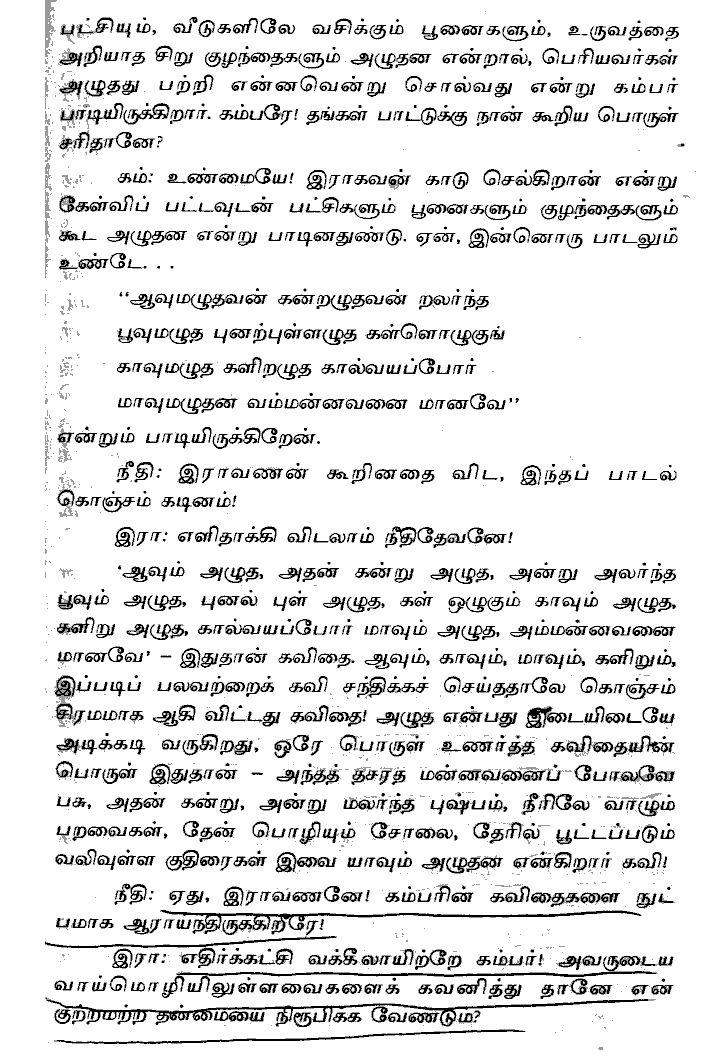 பட்சியும், வீடுகளிலே வசிக்கும் பூனைகளும், உருவத்தை
அறியாத சிறு குழந்தைகளும் அழுதன என்றால், பெரியவர்கள்
அழுதது பற்றி என்னவென்று சொல்வது என்று கம்பர்
பாடியிருக்கிறார். கம்பரே! தங்கள் பாட்டுக்கு நான் கூறிய பொருள்
சரிதானே?
கம்: உண்மையே! இராகவன் காடு செல்கிறான் என்று
கேள்விப் பட்டவுடன் பட்சிகளும் பூனைகளும் குழந்தைகளும்
கூட அழுதன என்று பாடினதுண்டு. ஏன், இன்னொரு பாடலும்
உண்டே. . .
"ஆவுமழுதவன் கன்றழுதவன் றலர்ந்த
பூவுமழுத புனற்புள்ளழுத கள்ளொழுகுங்
காவுமழுத களிறழுத கால்வயப்போர்
மாவுமழுதன வம்மன்னவனை மானவே"
என்றும் பாடியிருக்கிறேன்.
நீதி: இராவணன் கூறினதை விட, இந்தப் பாடல்
கொஞ்சம் கடினம்!
இரா: எளிதாக்கி விடலாம் நீதிதேவனே!
'ஆவும் அழுத, அதன் கன்று அழுத, அன்று அலர்ந்த
பூவும் அழுத, புனல் புள் அழுத, கள் ஒழுகும் காவும் அழுத,
களிறு அழுத, கால்வயப்போர் மாவும் அழுத, அம்மன்னவனை
மானவே' – இதுதான் கவிதை. ஆவும், காவும், மாவும், களிறும்,
இப்படிப் பலவற்றைக் கவி சந்திக்கச் செய்ததாலே கொஞ்சம்
சிரமமாக ஆகி விட்டது கவிதை! அழுத என்பது இடையிடையே
அடிக்கடி வருகிறது, ஒரே பொருள் உணர்த்த கவிதையின்
பொருள் இதுதான் – அந்தத் தசரத மன்னவனைப் போலவே
பசு, அதன் கன்று, அன்று மலர்ந்த புஷ்பம், நீரிலே வாழும்
பறவைகள், தேன் பொழியும் சோலை, தேரில் பூட்டப்படும்
வலிவுள்ள குதிரைகள் இவை யாவும் அழுதன என்கிறார் கவி!
நீதி: ஏது, இராவணனே! கம்பரின் கவிதைகளை நுட்
பமாக ஆராய்ந்திருக்கிறீரே!
இரா: எதிர்க்கட்சி வக்கீலாயிற்றே கம்பர்! அவருடைய
வாய்மொழியிலுள்ளவைகளைக் கவனித்து தானே என்
குற்றமற்ற தன்மையை நிரூபிக்க வேண்டும்?